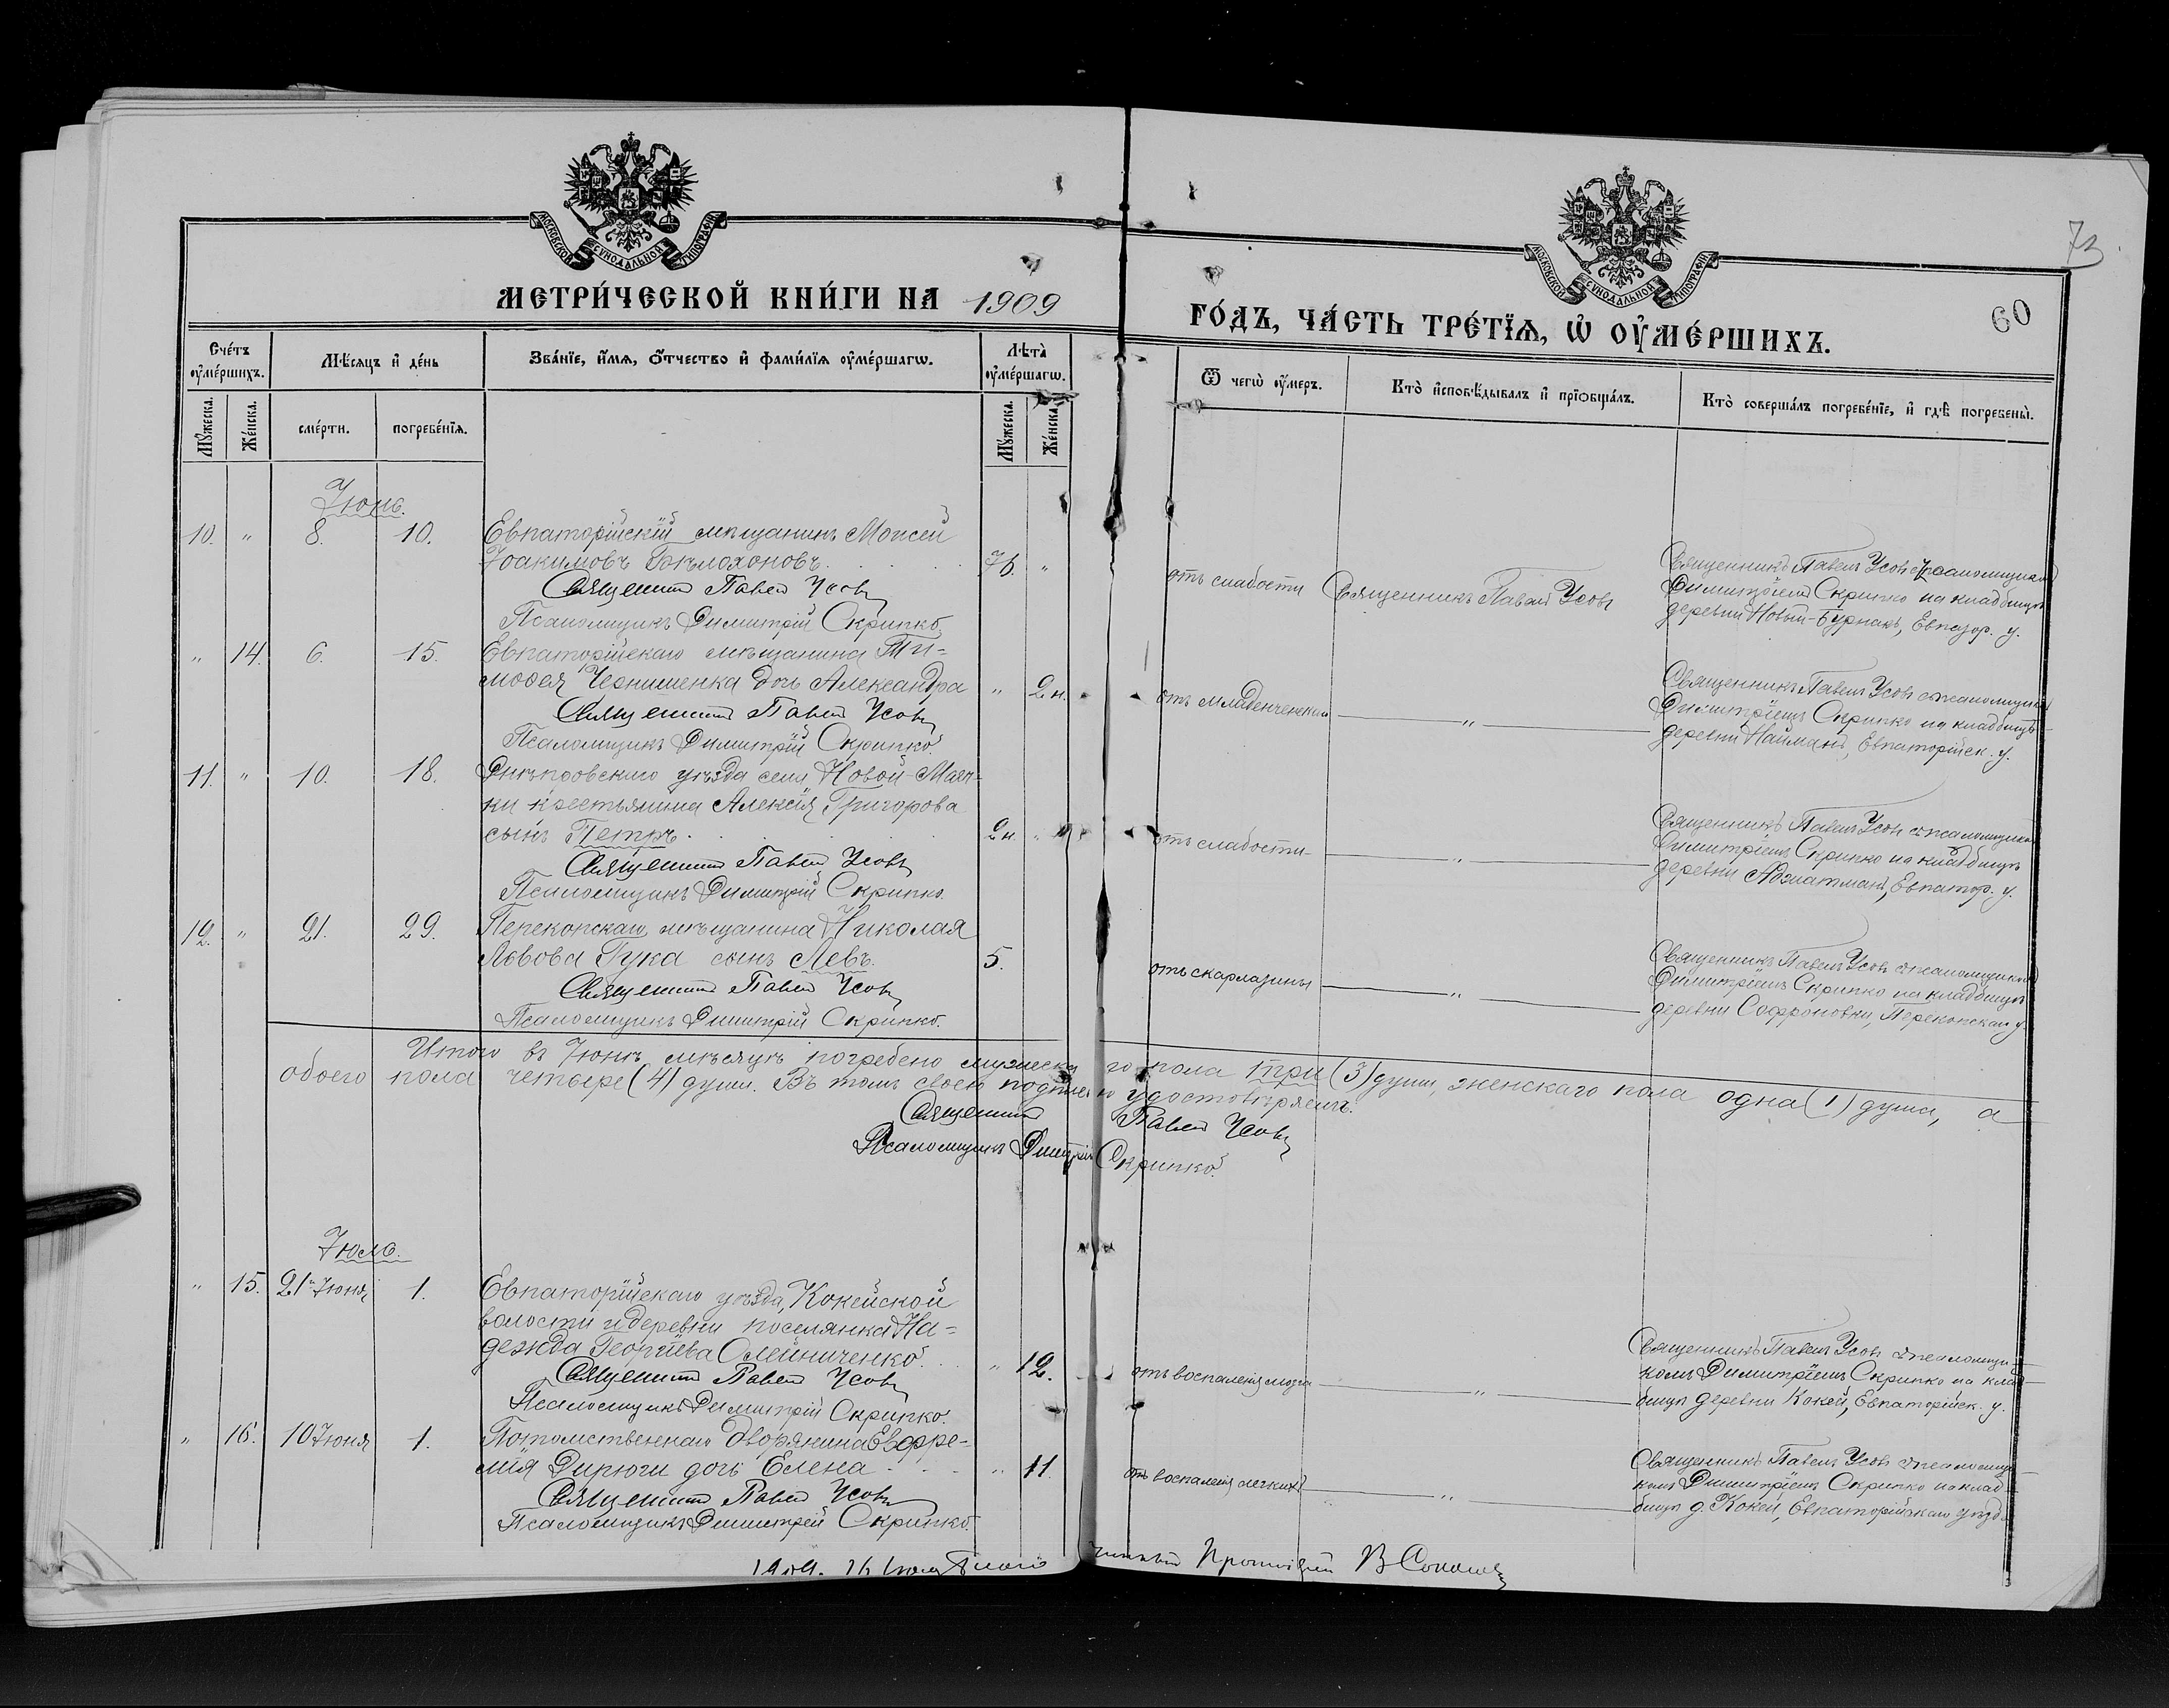 МОСКОВСКОЙ СУНОДАЛЬНОЙ ТИПОГРАФІИ
МОСКОВСКОЙ СУНОДАЛЬНОЙ ТИПОГРАФІИ
73
МЕТРИ́ЧЕСКОЙ КНИ́ГИ НА 1909 ГО́ДЪ, ЧА́СТЬ ТРЕ́ТІѦ, Ѡ҆ ОУ҆МЕ́РШИХЪ.
60
Сче́тъ оу҆ме́ршихъ.
Мѣ́сяцъ и҆ де́нь
Зва́нїе, и҆́мя, ѻ҆́тчество и҆ фами́лїя оу҆ме́ршагѡ.
Лѣ́та оу҆ме́ршагѡ.
Ѿ чегѡ̀ оу҆́меръ.
Кто̀ и҆сповѣ́дывалъ и҆ прїѡбща́лъ.
Кто̀ соверша́лъ погребе́нїе, и҆ гдѣ̀ погребены̀.
Мꙋ́жеска.
Же́нска.
сме́рти.
погребе́нїя.
Мꙋ́жеска.
Же́нска.
Іюнь.
10. " 8. 10. Евпаторійскій мѣщанинъ Моисей
Іоакимовъ Бѣлоконовъ. 76. "
Священникъ Павелъ Усовъ
Псаломщикъ Димитрій Скрипко.
отъ слабости
Священникъ Павелъ Усовъ
Священникъ Павелъ Усовъ съ псаломщикомъ
Димитріемъ Скрипко на кладбищѣ
деревни Новый-Бурнакъ, Евпатор. у.
" 14. 6. 15. Евпаторійскаго мѣщанина Ти-
моѳея Чернишенка дочь Александра " 2 н.
Священникъ Павелъ Усовъ
Псаломщикъ Димитрій Скрипко
отъ младенческой
"
Священникъ Павелъ Усовъ съ псаломщикомъ
Димитріемъ Скрипко на кладбищѣ
деревни Найманъ, Евпаторійск. у.
11. " 10. 18. Днѣпровскаго уѣзда села Новой-Маяч-
ки крестьянина Алексія Григорова
сынъ Петръ. 2 н. "
Священникъ Павелъ Усовъ
Псаломщикъ Димитрій Скрипко.
отъ слабости
"
Священникъ Павелъ Усовъ съ псаломщикомъ
Димитріемъ Скрипко на кладбищѣ
деревни Аджатманъ, Евпатор. у.
12. " 21. 29. Перекопскаго мѣщанина Николая
Львова Гука сынъ Левъ. 5.
Священникъ Павелъ Усовъ
Псаломщикъ Димитрій Скрипко.
отъ скарлатины
"
Священникъ Павелъ Усовъ съ псаломщикомъ
Димитріемъ Скрипко на кладбищѣ
деревни Софроновки, Перекопскаго у.
Итого въ Іюнѣ мѣсяцѣ погребено мужеского пола три (3) души, женскаго пола одна (1) душа, а
обоего пола четыре (4) души. Въ томъ своею подписью удостовѣряемъ.
Священникъ Павелъ Усовъ
Псаломщикъ Димитрій Скрипко.
Іюль.
" 15. 21 Іюня 1. Евпаторійскаго уѣзда, Кокейской
волости и деревни поселянка На-
дежда Георгіева Олейниченко. " 12.
Священникъ Павелъ Усовъ
Псаломщикъ Димитрій Скрипко.
отъ воспаленія мозга
"
Священникъ Павелъ Усовъ съ псаломщи-
комъ Димитріемъ Скрипко на клад-
бищѣ деревни Кокей, Евпаторійск. у.
" 16. 10 Іюня 1. Потомственнаго дворянина Евфре-
мія Дирюги дочь Елена " 11.
Священникъ Павелъ Усовъ
Псаломщикъ Димитрій Скрипко.
отъ воспаленія легкихъ
"
Священникъ Павелъ Усовъ съ псаломщи-
комъ Димитріемъ Скрипко на клад-
бищѣ д. Кокей, Евпаторійскаго уѣзда
1909. 16 Благочинный Протоіерей В